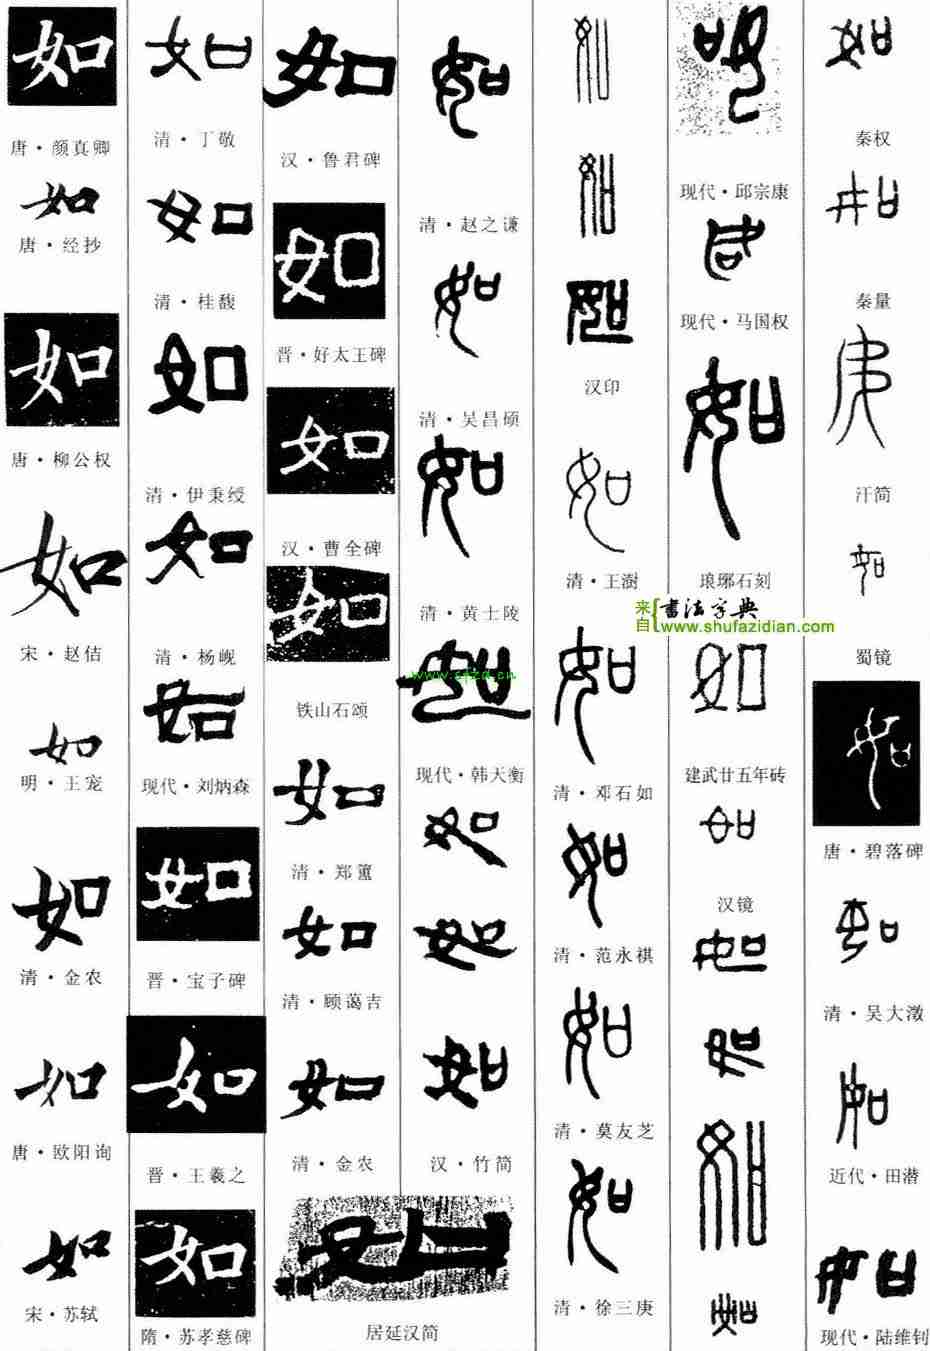 如
唐·颜真卿
如
唐·经抄
如
唐·柳公权
如
宋·赵佶
如
明·王宠
如
清·金农
如
唐·欧阳询
如
宋·苏轼
如
清·丁敬
如
清·桂馥
如
清·伊秉绶
如
清·杨岘
如
现代·刘炳森
如
晋·宝子碑
如
晋·王羲之
如
隋·苏孝慈碑
如
汉·鲁君碑
如
晋·好太王碑
如
汉·曹全碑
如
铁山石颂
如
清·郑簠
如
清·顾蔼吉
如
清·金农
如
居延汉简
如
清·赵之谦
如
清·吴昌硕
如
清·黄士陵
如
www.sfzd.cn
现代·韩天衡
如
如
如
汉·竹简
如
如
如
汉印
如
清·王澍
如
清·邓石如
如
清·范永祺
如
清·莫友芝
如
清·徐三庚
如
现代·邱宗康
如
现代·马国权
如
琅琊石刻
来自{书法字典
www.shufazidian.com
如
建武廿五年砖
如
汉镜
如
如
如
如
如
秦权
如
秦量
如
汗简
如
蜀镜
如
唐·碧落碑
如
清·吴大澂
如
近代·田潜
如
现代·陆维钊